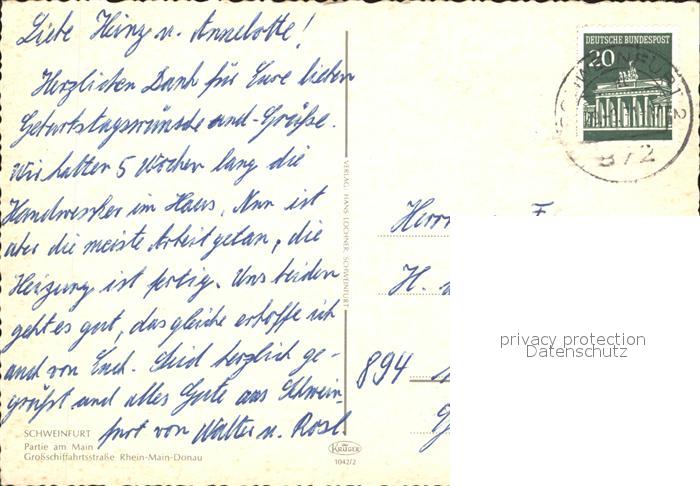 Liebe Heinz u. Annelotte!
Herzlichen Dank für Eure lieben
Geburtstagswünsche und -Grüße.
Wir hatten 5 Wochen lang die
Handwerker im Haus. Nun ist
aber die meiste Arbeit getan, die
Heizung ist fertig. Uns beiden
geht es gut, das gleiche erhoffe ich
auch von Euch. Seid herzlich ge-
grüßt und alles Gute aus Schwein-
furt von Walter u. Rosl.
SCHWEINFURT
Partie am Main
Großschiffahrtsstraße Rhein-Main-Donau
VERLAG: HANS LOCHNER, SCHWEINFURT
KRÜGER
1042/2
DEUTSCHE BUNDESPOST
20
SCHWEINFURT 2
872
Herrn
H.
894
privacy protection
Datenschutz